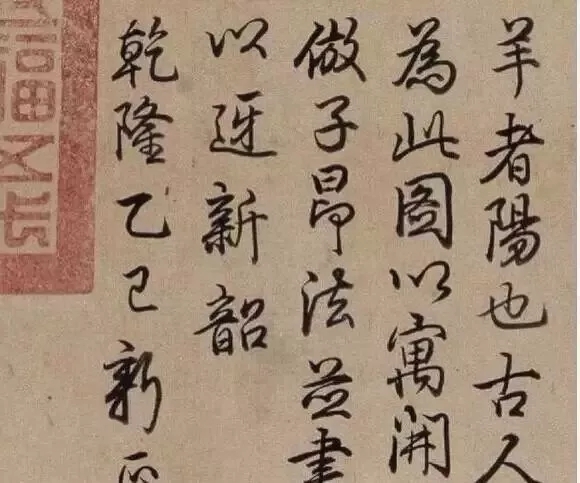 羊者陽也古人
為此圖以寓開
倣子昂法並書
以迓新韶
乾隆乙巳新正